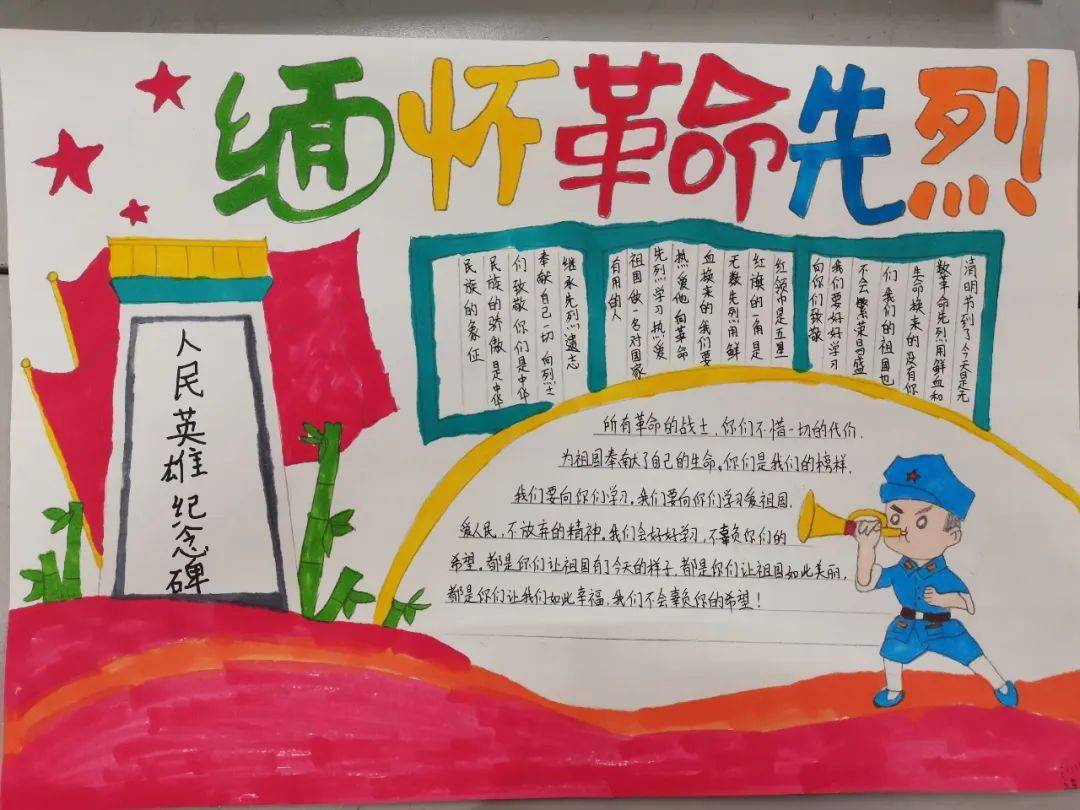 缅怀革命先烈
人民英雄纪念碑
清明节到了今天是无
数革命先烈用鲜血和
生命换来的没有你
们我们的祖国也
不会繁荣昌盛
我们要好好学习
向你们致敬
红领巾是五星
红旗的一角是
无数先烈用鲜
血换来的我们要
热爱他向革命
先烈学习热爱
祖国做一名对国家
有用的人
继承先烈遗志
奉献自己一切向烈士
们致敬你们是中华
民族的骄傲是中华
民族的象征
所有革命的战士、你们不惜一切的代价,
为祖国奉献了自己的生命。你们是我们的榜样,
我们要向你们学习。我们要向你们学习爱祖国,
爱人民,不放弃的精神。我们会好好学习,不辜负你们的
希望。都是你们让祖国有了今天的样子,都是你们让祖国如此美丽,
都是你们让我们如此幸福,我们不会辜负你的希望!